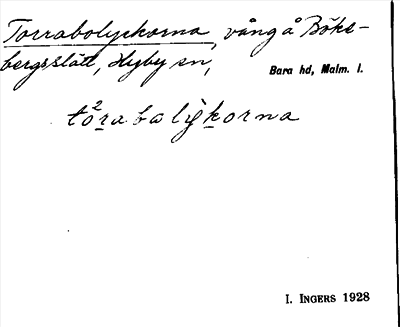 Torrabolyckorna, vång å Böks-
bergsslätt, Hyby sn,
Bara hd, Malm. l.
tò²rabalỳkorna
I. INGERS 1928